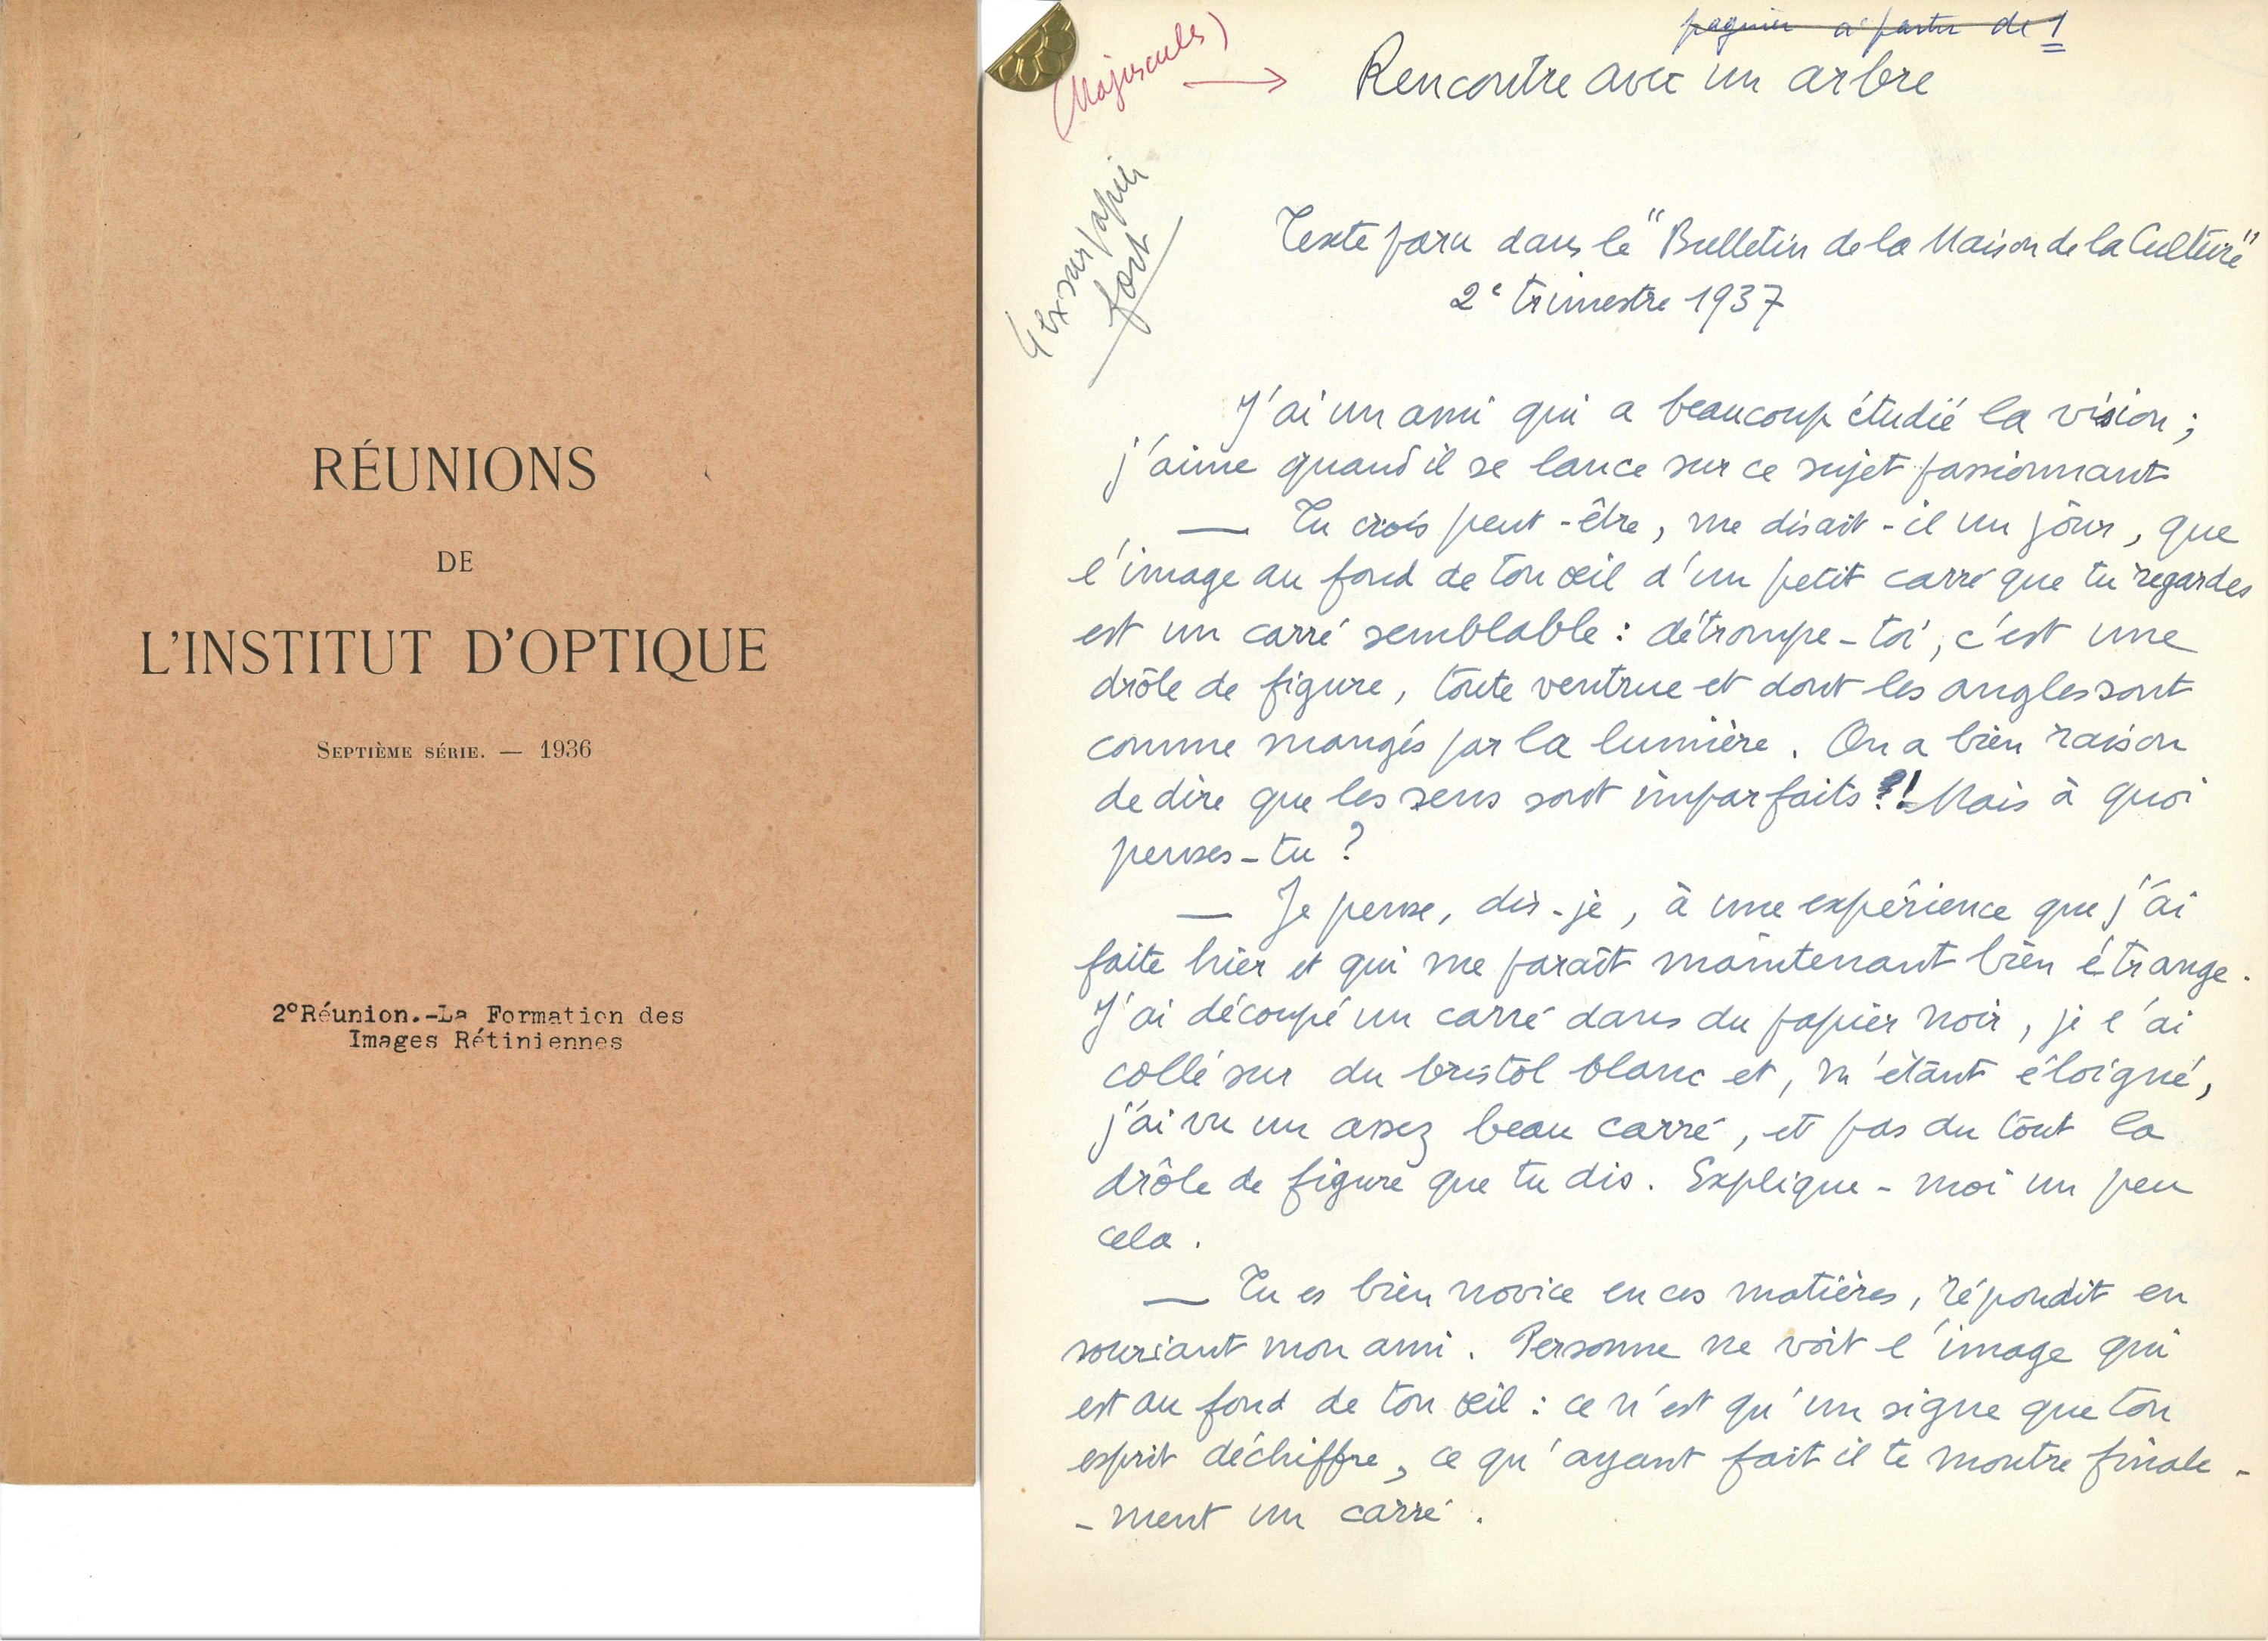 RÉUNIONS
DE
L'INSTITUT D'OPTIQUE
SEPTIÈME SÉRIE. — 1936
2°Réunion.-La Formation des
Images Rétiniennes
paginer à partir de 1
(Majuscules)
Rencontre avec un arbre
4 ex sur papier
fort
Texte paru dans le "Bulletin de la Maison de la Culture"
2e trimestre 1937
J'ai un ami qui a beaucoup étudié la vision ;
j'aime quand il se lance sur ce sujet passionnant
— Tu crois peut-être, me disait-il un jour, que
l'image au fond de ton œil d'un petit carré que tu regardes
est un carré semblable : détrompe-toi, c'est une
drôle de figure, toute ventrue et dont les angles sont
comme mangés par la lumière. On a bien raison
de dire que les sens sont imparfaits ! Mais à quoi
penses-tu ?
— Je pense, dis-je, à une expérience que j'ai
faite hier et qui me paraît maintenant bien étrange.
J'ai découpé un carré dans du papier noir, je l'ai
collé sur du bristol blanc et, m'étant éloigné,
j'ai vu un assez beau carré, et pas du tout la
drôle de figure que tu dis. Explique-moi un peu
cela.
— Tu es bien novice en ces matières, répondit en
souriant mon ami. Personne ne voit l'image qui
est au fond de ton œil : ce n'est qu'un signe que ton
esprit déchiffre, ce qu'ayant fait il te montre finale-
-ment un carré.